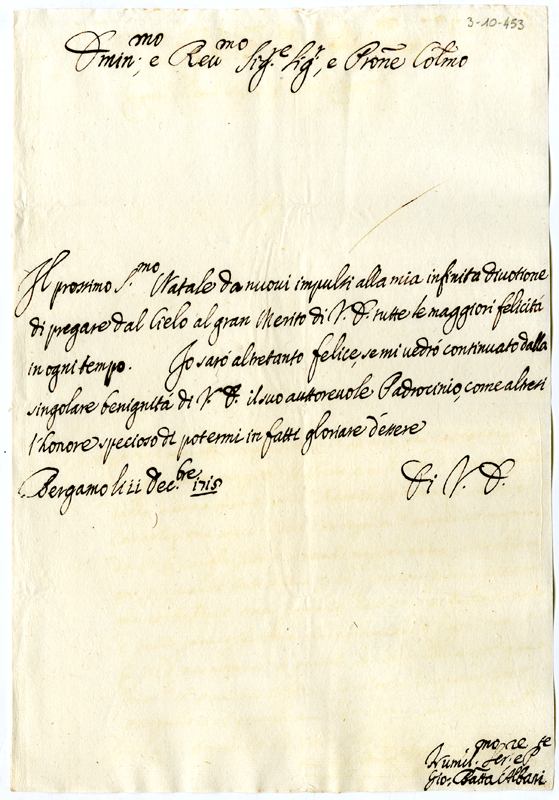 3-10-453
Emin.mo e Reu.mo Sig.re Sig.r, e Prõne Colmo
Il prossimo S.mo Natale da nuoui impulsi alla mia infinita diuotione
di pregare dal Cielo al gran Merito di V. E. tutte le maggiori felicità
in ogni tempo. Io sarò altretanto felice, se mi uedrò continuato dalla
singolare benignità di V. E. il suo auttoreuole Padrocinio, come altresi
l'honore specioso di potermi in fatti gloriare d'essere
Bergamo li 11 Dec.bre 1715
Di V. E.
Humil.mo Ser.e
Gio: Batta Albani